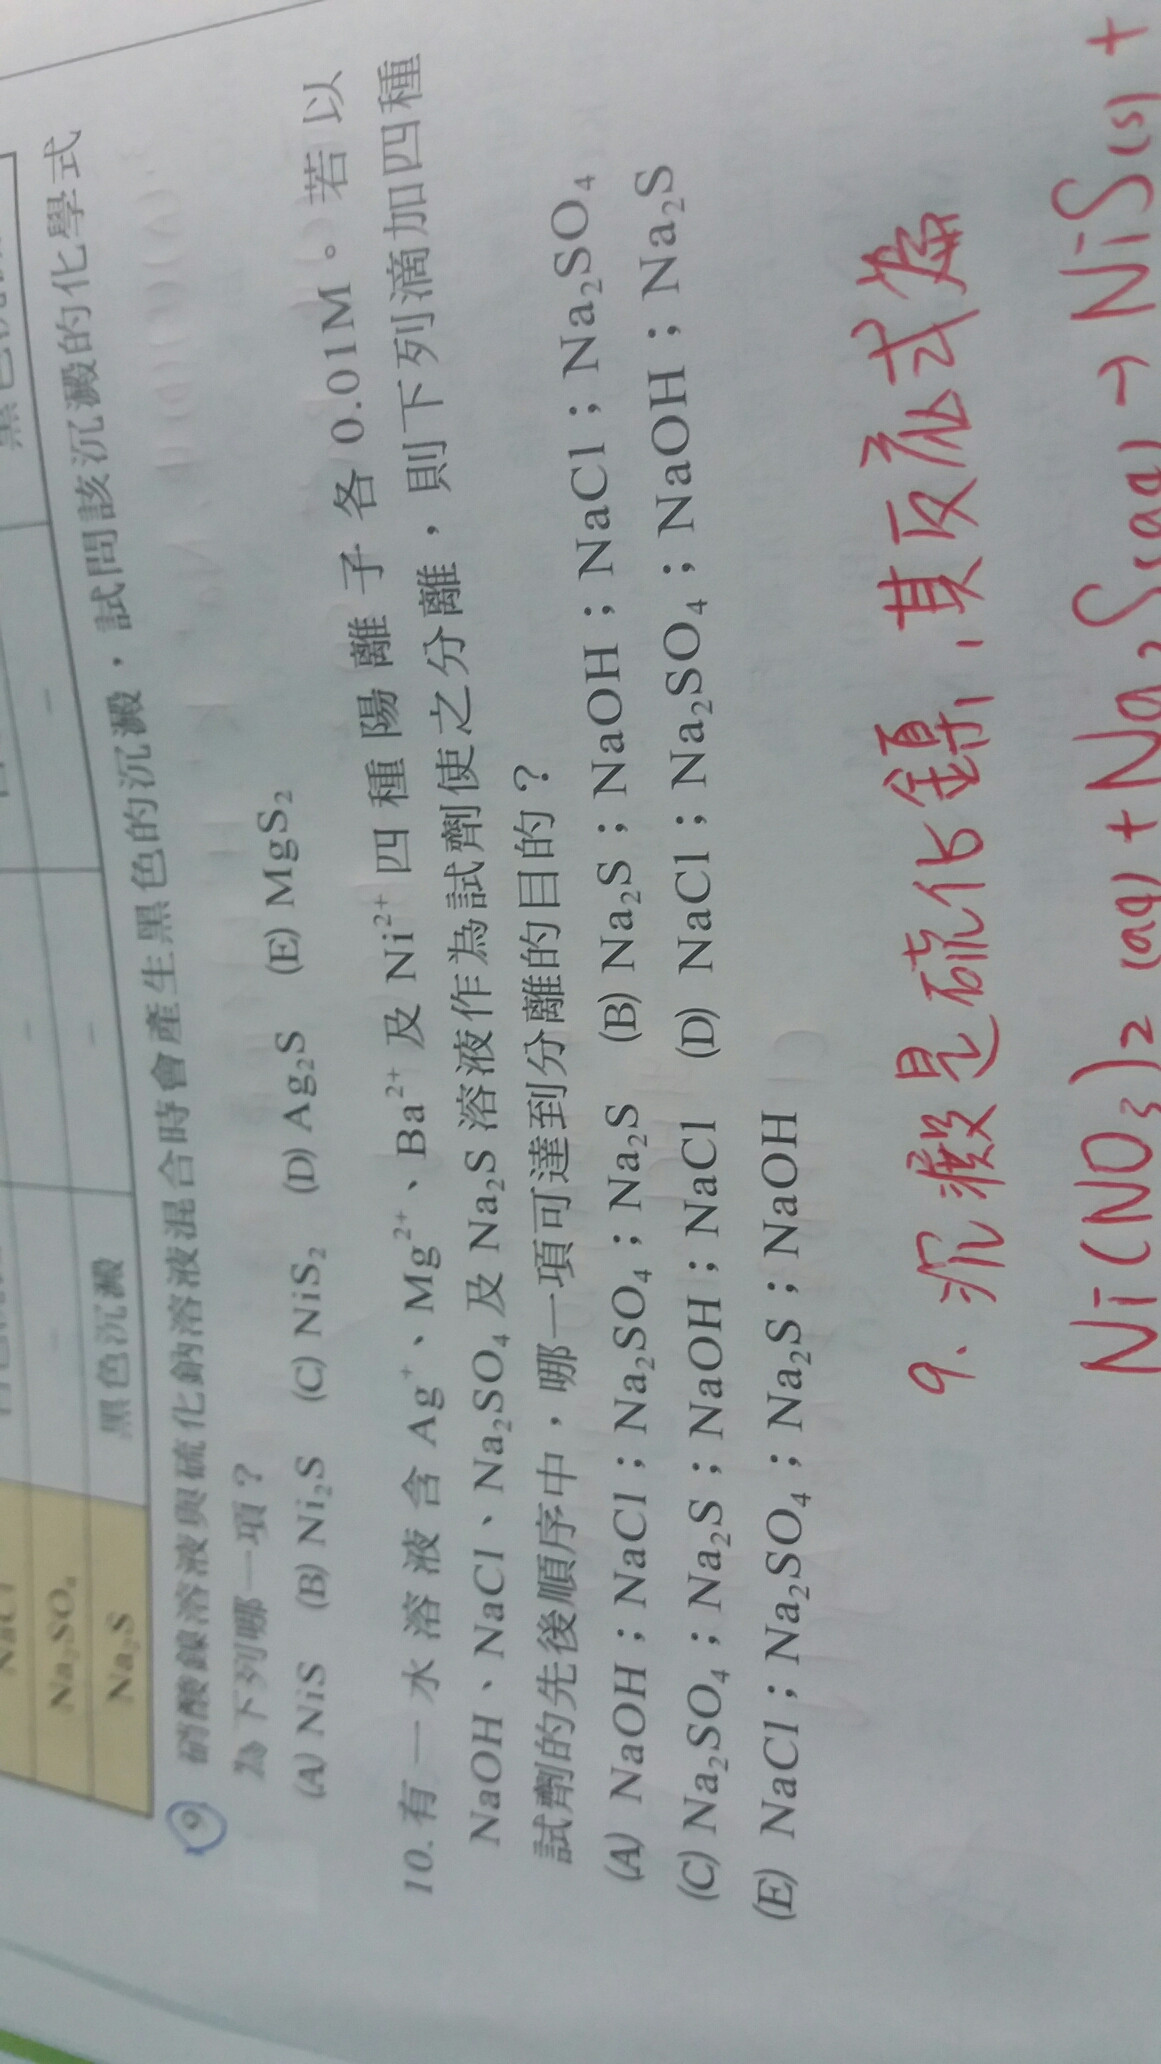 Na₂SO₄ － － －
Na₂S 黑色沉澱 － －
⑨ 硝酸鎳溶液與硫化鈉溶液混合時會產生黑色的沉澱，試問該沉澱的化學式
為下列哪一項？
(A) NiS (B) Ni₂S (C) NiS₂ (D) Ag₂S (E) MgS₂
10. 有一水溶液含 Ag⁺、Mg²⁺、Ba²⁺ 及 Ni²⁺ 四種陽離子各 0.01M。若以
NaOH、NaCl、Na₂SO₄ 及 Na₂S 溶液作為試劑使之分離，則下列滴加四種
試劑的先後順序中，哪一項可達到分離的目的？
(A) NaOH；NaCl；Na₂SO₄；Na₂S (B) Na₂S；NaOH；NaCl；Na₂SO₄
(C) Na₂SO₄；Na₂S；NaOH；NaCl (D) NaCl；Na₂SO₄；NaOH；Na₂S
(E) NaCl；Na₂SO₄；Na₂S；NaOH
9、沉澱是硫化鎳，其反應式為
Ni(NO₃)₂(aq) + Na₂S(aq) → NiS(s) +